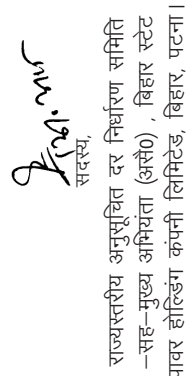 सदस्य,
राज्यस्तरीय अनुसूचित दर निर्धारण समिति
–सह–मुख्य अभियंता (असै0) , बिहार स्टेट
पावर होल्डिंग कंपनी लिमिटेड, बिहार, पटना।